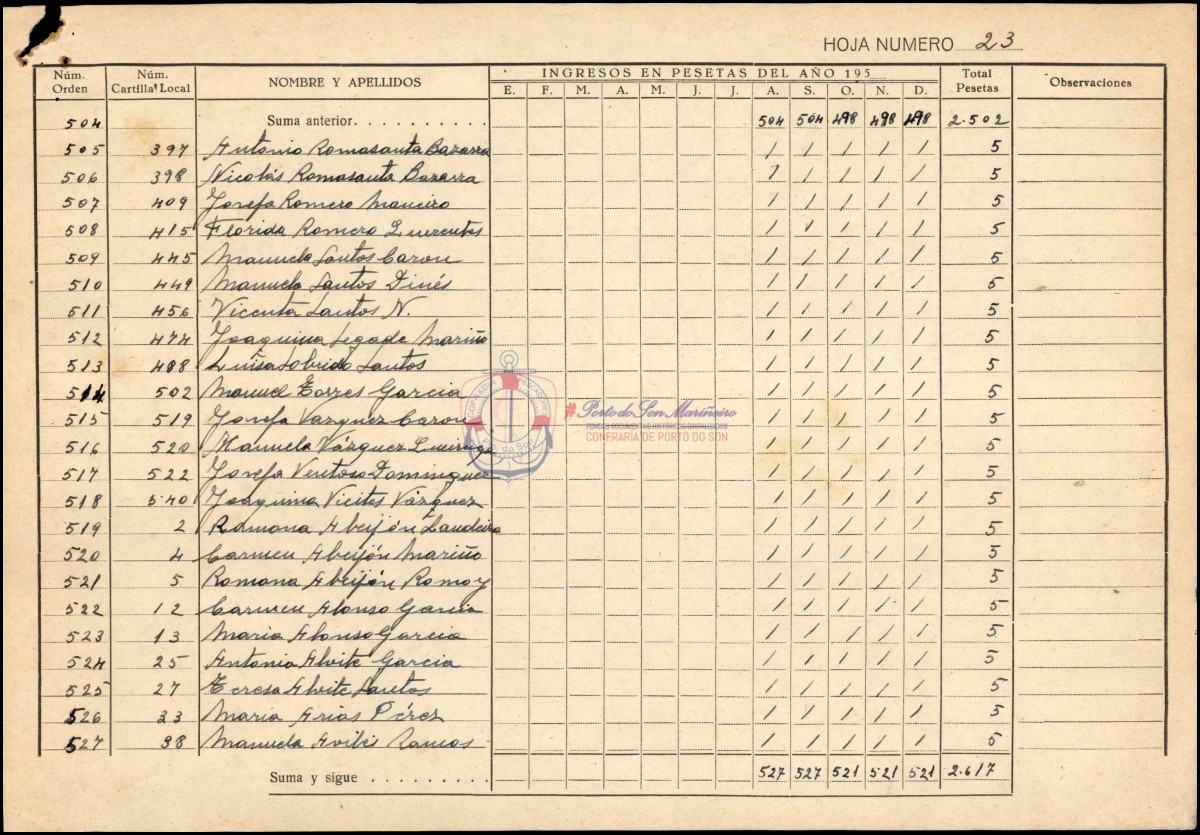 HOJA NUMERO 23
Núm. Orden Núm. Cartilla Local NOMBRE Y APELLIDOS INGRESOS EN PESETAS DEL AÑO 195 Total Pesetas Observaciones
E. F. M. A. M. J. J. A. S. O. N. D.
504 Suma anterior. . . . . . . . . . . 504 504 498 498 498 2.502
505 397 Antonio Romasanta Bazarra / / / / / 5
506 398 Nicolás Romasanta Bazarra 1 / / / / 5
507 409 Josefa Romero Maneiro / / / / / 5
508 415 Florida Romero / / / / / 5
509 445 Manuela Santos Caron / / / / / 5
510 449 Manuela Santos Dinés / / / / / 5
511 456 Vicenta Santos N. / / / / / 5
512 474 Joaquina Segade Mariño / / / / / 5
513 488 Luisa Lobrido Santos / / / / / 5
514 502 Manuel Torres Garcia / / / / / 5
515 519 Josefa Vazquez Caron / / / / / 5
516 520 Manuela Vázquez / / / / / 5
517 522 Josefa Ventoso Dominguez / / / / / 5
518 540 Joaquina Vieites Vázquez / / / / / 5
519 2 Ramona Abeijón Landeira / / / / / 5
520 4 Carmen Abeijón Mariño / / / / / 5
521 5 Romana Abeijón Romay / / / / / 5
522 12 Carmen Alonso Garcia / / / / / 5
523 13 Maria Alonso Garcia / / / / / 5
524 25 Antonia Alvite Garcia / / / / / 5
525 27 Teresa Alvite Santos / / / / / 5
526 33 Maria Arias Pérez / / / / / 5
527 38 Manuela Avilés Ramos / / / / / 5
Suma y sigue . . . . . . . . . 527 527 521 521 521 2.617
#Porto do Son Mariñeiro
FONDOS DOCUMENTAIS HISTÓRICOS DIXITALIZADOS
CONFRARIA DE PORTO DO SON